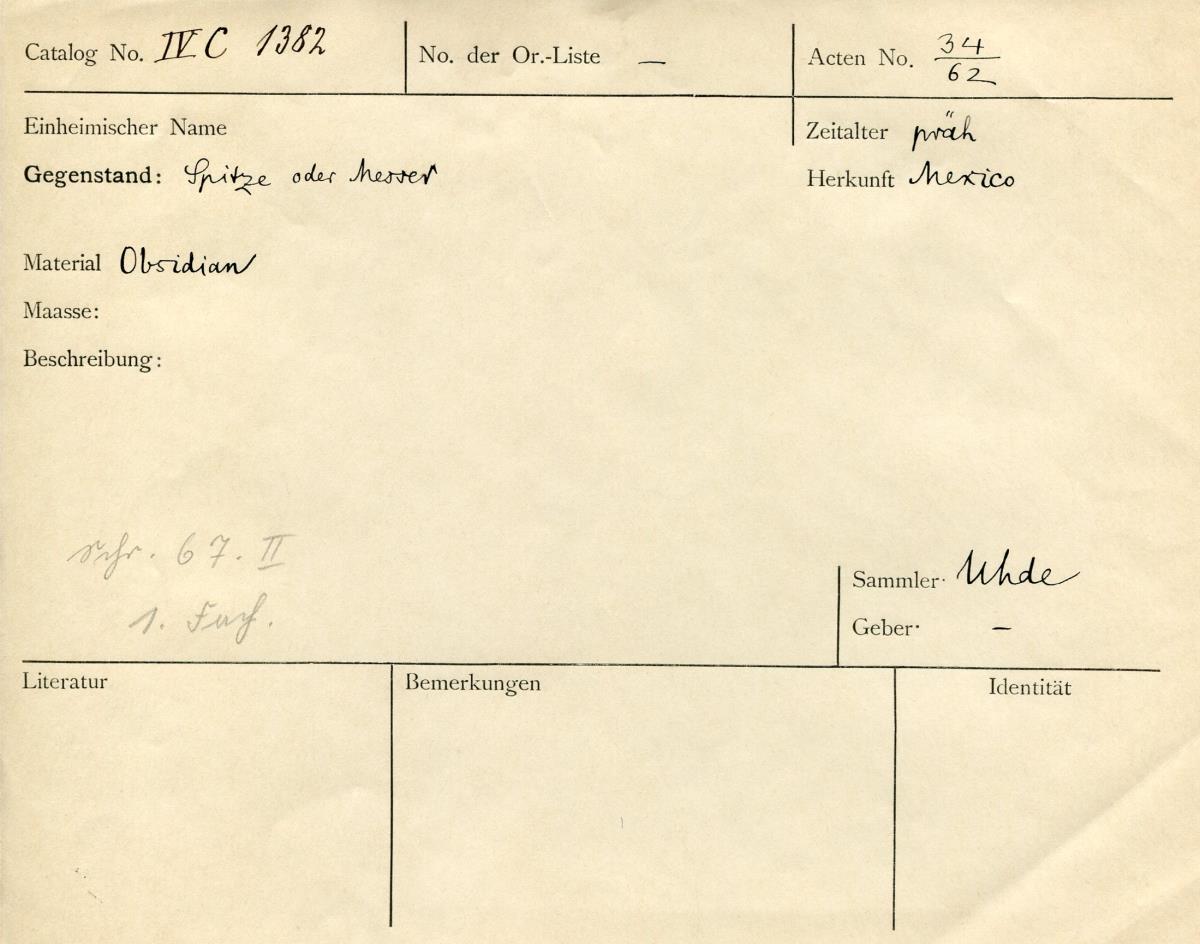 Catalog No. IV C 1382
No. der Or.-Liste —
Acten No. 34/62
Einheimischer Name
Zeitalter präh
Gegenstand: Spitze oder Messer
Herkunft Mexico
Material Obsidian
Maasse:
Beschreibung:
Schr. 67. II
1. Fach.
Sammler· Uhde
Geber· —
Literatur
Bemerkungen
Identität